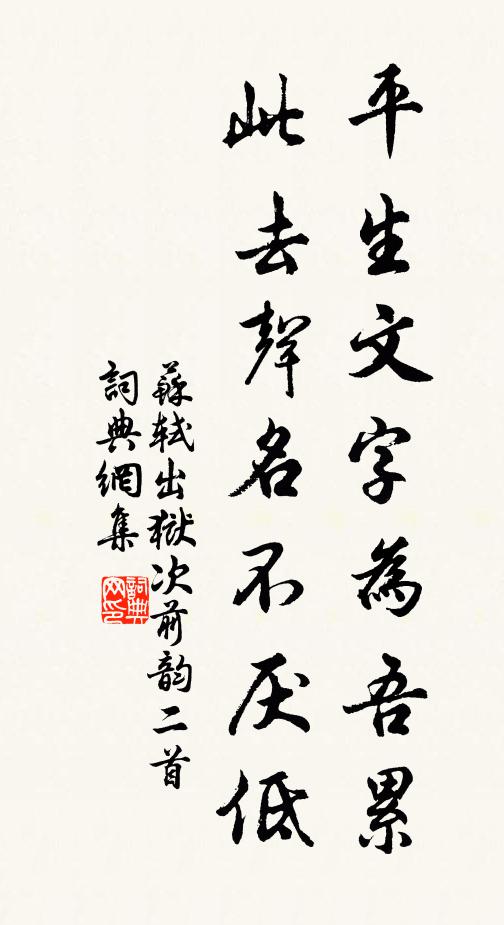 平生文字為吾累
此去聲名不厌低
蘇軾出獄次前韵二首
詞典網集
詞典网印